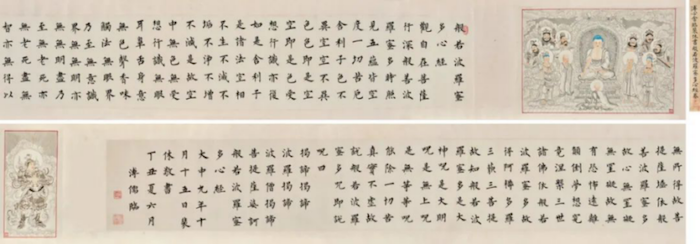 般若波羅蜜
多心經
觀自在菩薩
行深般若波
羅蜜多時照
見五蘊皆空
度一切苦厄
舍利子色不
異空空不異
色色即是空
空即是色受
想行識亦復
如是舍利子
是諸法空相
不生不滅不
垢不淨不增
不減是故空
中無色無受
想行識無眼
耳鼻舌身意
無色聲香味
觸法無眼界
乃至無意識
界無無明亦
無無明盡乃
至無老死亦
無老死盡無
苦集滅道無
智亦無得以
無所得故菩
提薩埵依般
若波羅蜜多
故心無罣礙
無罣礙故無
有恐怖遠離
顛倒夢想究
竟涅槃三世
諸佛依般若
波羅蜜多故
得阿耨多羅
三藐三菩提
故知般若波
羅蜜多是大
神咒是大明
咒是無上咒
是無等等咒
能除一切苦
真實不虛故
說般若波羅
蜜多咒即說
咒曰
揭諦揭諦
波羅揭諦
波羅僧揭諦
菩提薩婆訶
般若波羅蜜
多心經
大中元年十
月十五日裴
休敬書
丁丑夏六月
溥儒臨